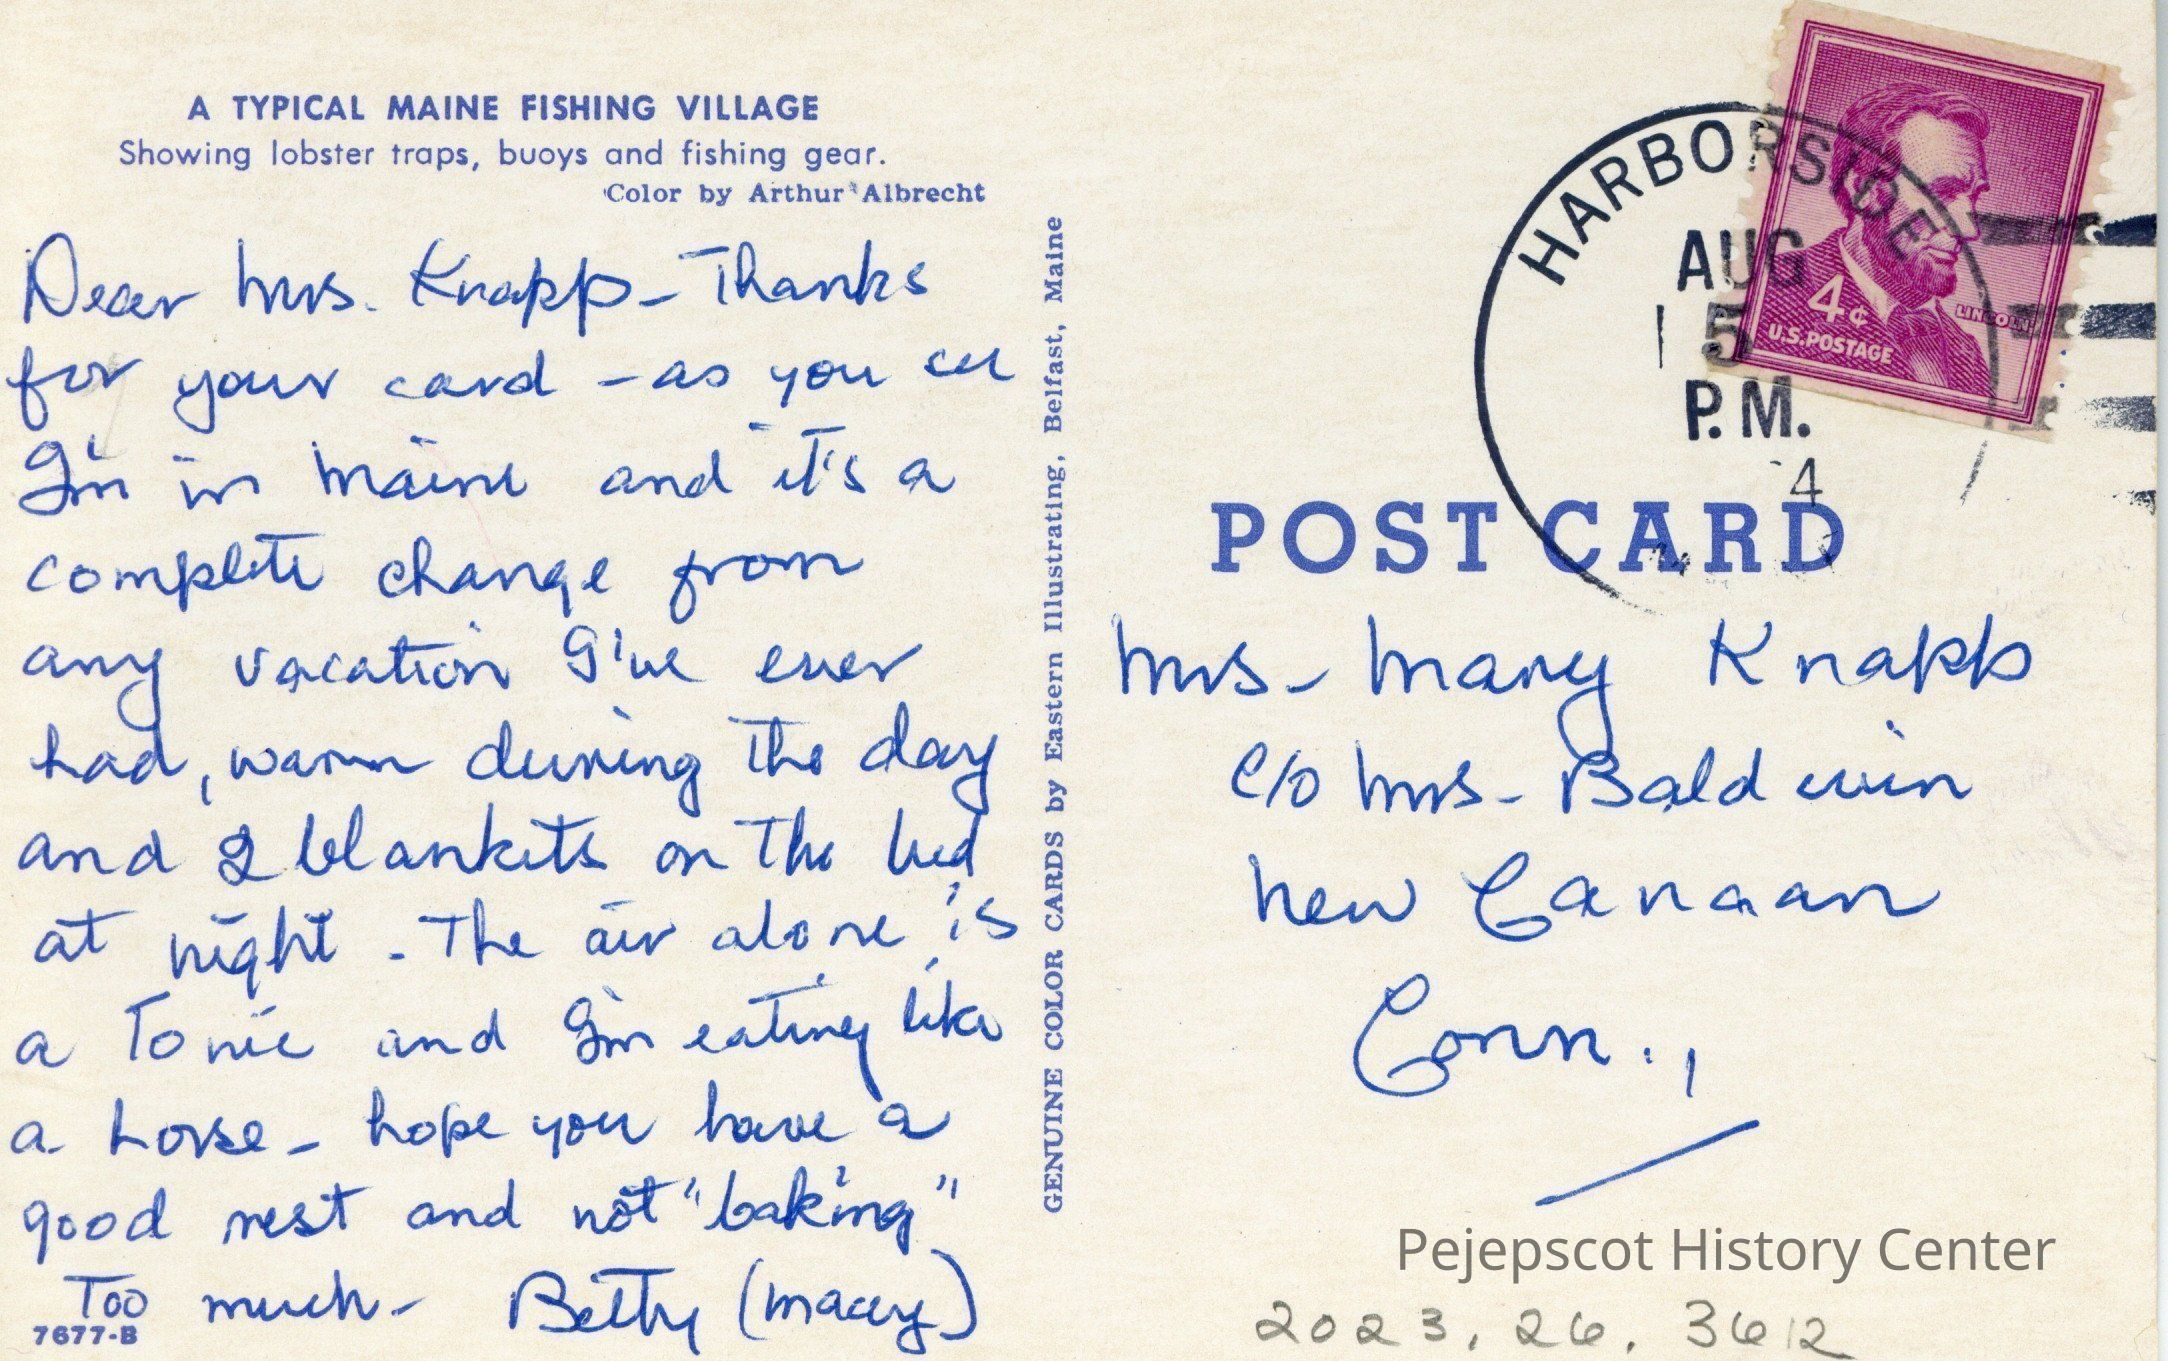 A TYPICAL MAINE FISHING VILLAGE
Showing lobster traps, buoys and fishing gear.
Color by Arthur Albrecht
Dear Mrs. Knapp - Thanks
for your card - as you see
I'm in Maine and it's a
complete change from
any vacation I've ever
had, warm during the day
and 2 blankets on the bed
at night - The air alone is
a Tonic and I'm eating like
a horse - hope you have a
good rest and not "baking"
Too much - Betty (Macey)
7677-B
GENUINE COLOR CARDS by Eastern Illustrating, Belfast, Maine
HARBORSIDE
AUG
15
P.M.
4¢
LINCOLN
U.S. POSTAGE
POST CARD
Mrs - Mary Knapp
c/o Mrs - Baldwin
New Canaan
Conn.,
Pejepscot History Center
2023.26.3612